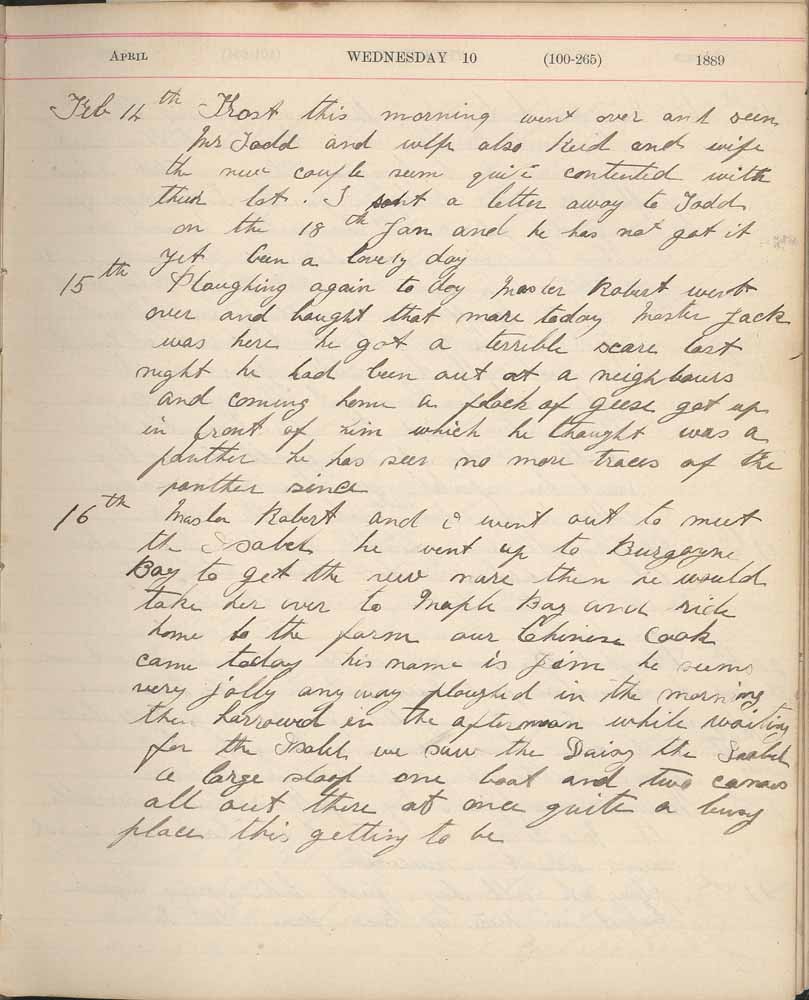 April WEDNESDAY 10 (100-265) 1889
Feb 14th Frost this morning went over and seen
Mr Todd and wife also Reid and wife
the new couple seem quite contented with
their lot. I sent a letter away to Todd
on the 18th Jan and he has not got it
yet been a lovely day
15th Ploughing again to day Master Robert went
over and bought that mare today Master Jack
was here he got a terrible scare last
night he had been out at a neighbours
and coming home a flock of geese got up
in front of him which he thought was a
panther he has seen no more traces of the
panther since
16th Master Robert and i went out to meet
the Isabel he went up to Burgoyne
Bay to get the new mare then he would
take her over to Maple Bay and ride
home to the farm our Chinese Cook
came today his name is Jim he seems
very jolly any way ploughed in the morning
then harrowed in the afternoon while waiting
for the Isabel we saw the Daisy the Isabel
a large sloop one boat and two canoes
all out there at once quite a busy
place this getting to be